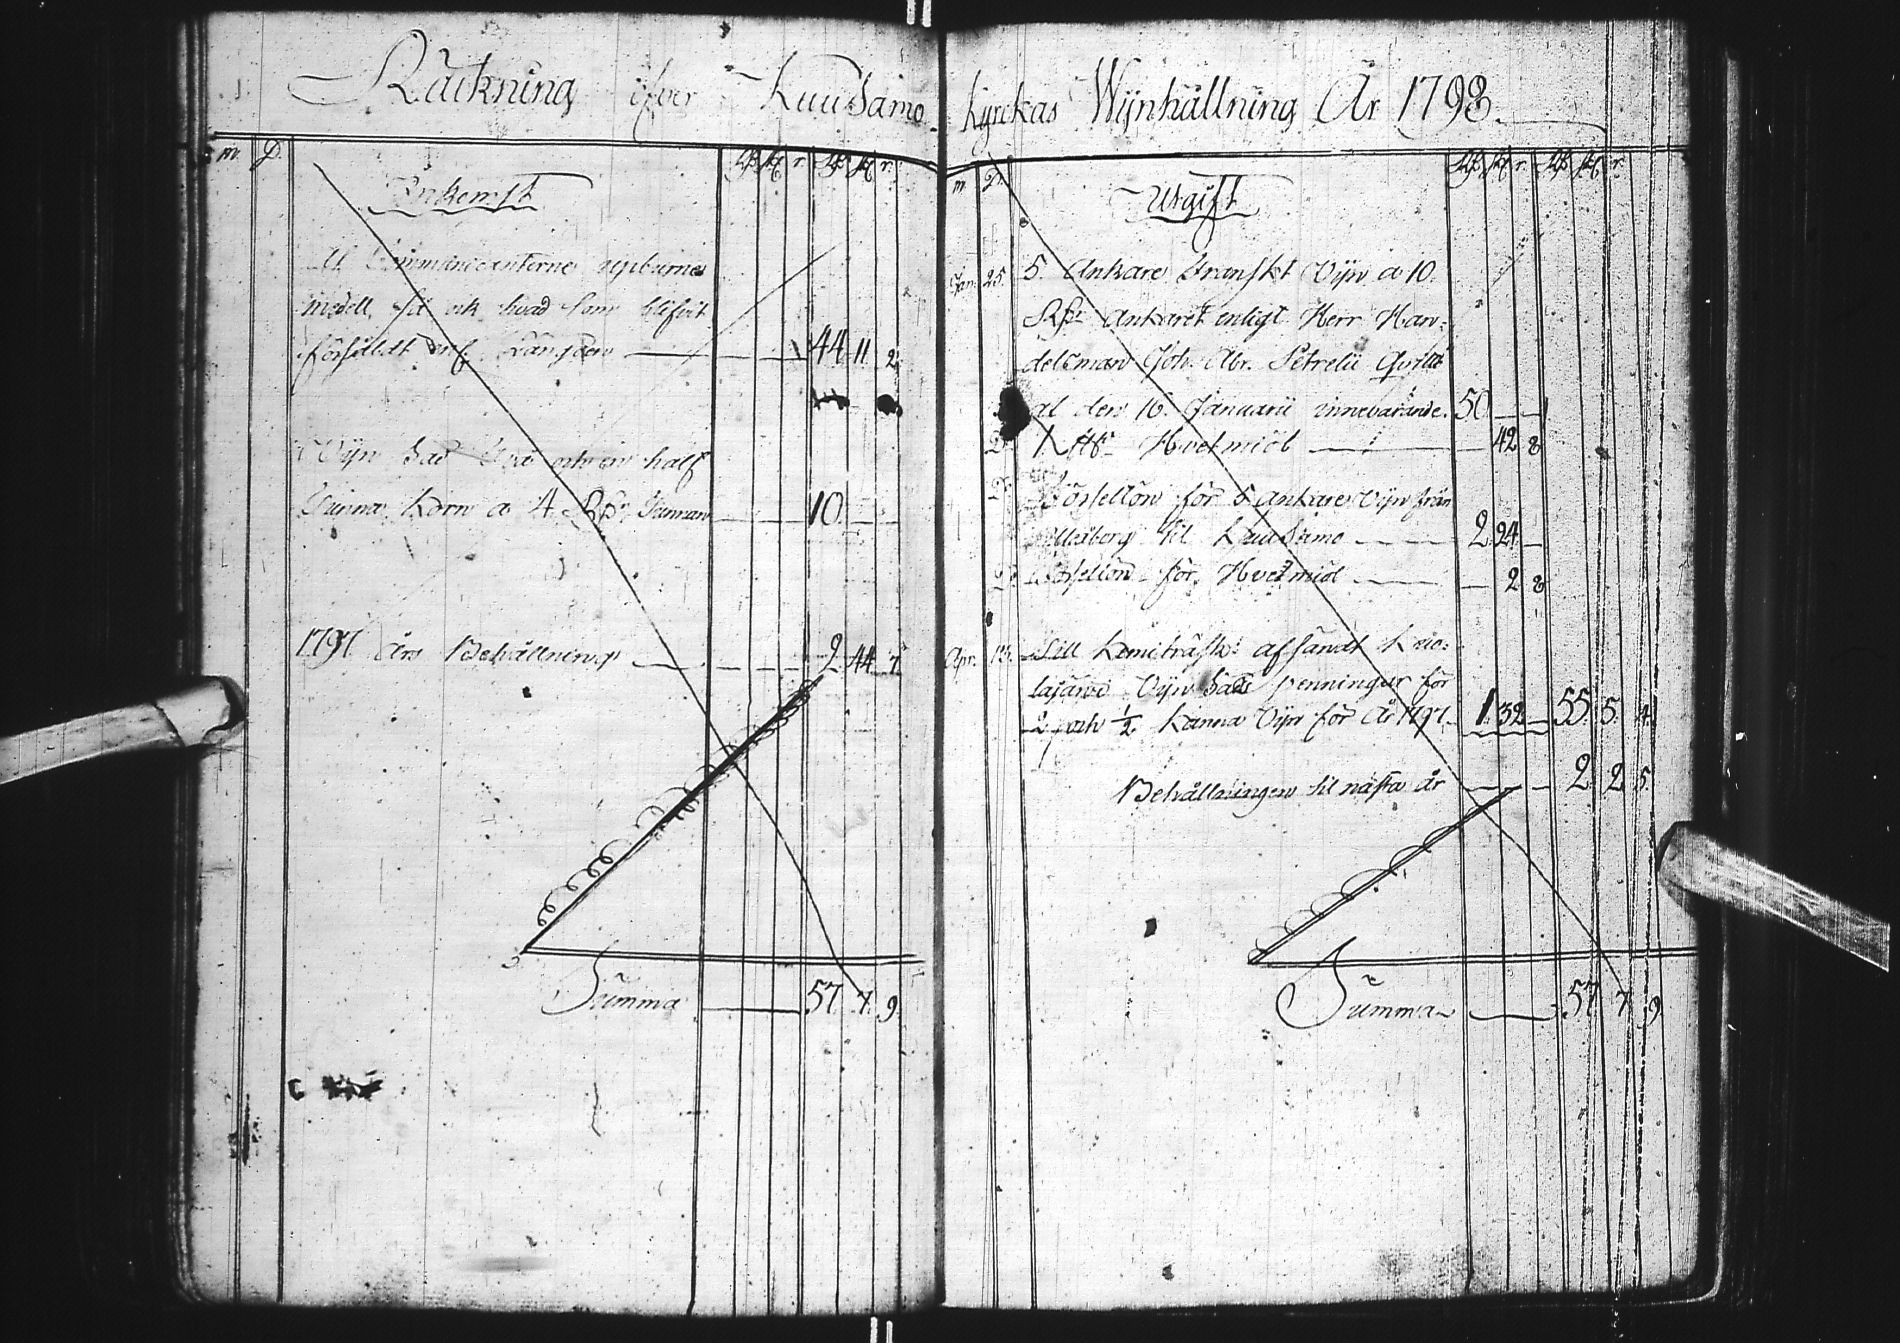 Räckning öfver Kuusamo kyrckas Wijnhållning År 1798.
m. D. Rdr sk r. Rdr sk r.
Inkomst
Af Communicanterne upburne
medell, så ock hvad som blifvit
försåldt enl. Längden 44 11 2
Wijn Säd Två och en half
Tunna Korn a 4 Rdr Tunnan 10
1797 års Behållning 2. 44. 7
Summa 57. 7. 9.
m. D. Rdr sk r. Rdr sk r.
Utgift
Jan. 25. 5 Ankare franskt Vijn a 10.
Rdr Ankaret enligt Herr Han=
delsman Joh. Abr. Petrelii Qvitt
af den 16. Januarii innevarande. 50
D. 1 Hvetmiöl 42 8
D. Forsellön för 5 Ankare Vijn från
Uleåborg til Kuusamo 2. 24.
D. Forsellön för Hvetmiöl 2 8
Apr. 13. Till Kemiträsk afsändt Kuo=
lajärvi Vijn Säds penningar för
2 och 1/2 Kanna Vijn för År 1797. 1. 32 55. 5. 4.
Behållningen til nästa år 2 2 5.
Summa 57. 7. 9.